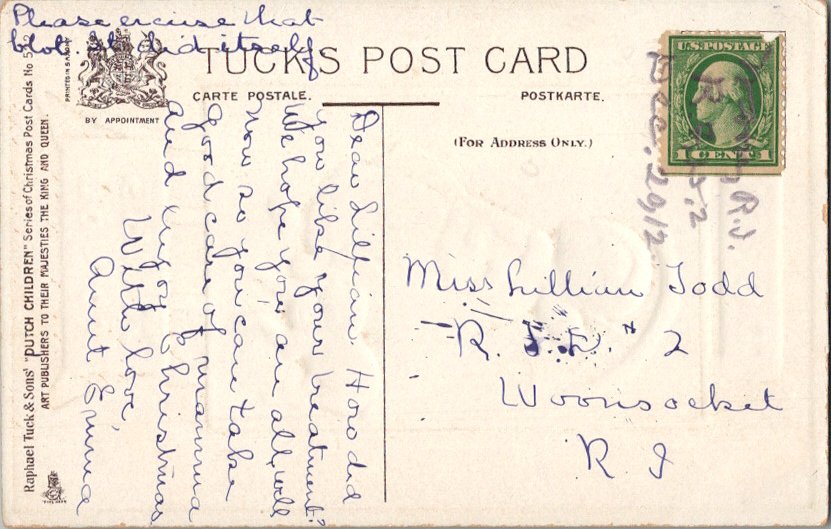 Please excuse that
blot. It did itself.
TUCK'S POST CARD
CARTE POSTALE.
POSTKARTE.
(FOR ADDRESS ONLY.)
BY APPOINTMENT
PRINTED IN SAXONY
Raphael Tuck & Sons' "DUTCH CHILDREN" Series of Christmas Post Cards No
ART PUBLISHERS TO THEIR MAJESTIES THE KING AND QUEEN.
U.S. POSTAGE
1 CENT 1
R.I.
Dec. 2 1912
Dear Lillian How did
you like your treatment?
We hope you are all well
now so you can take
good care of mamma
and enjoy Christmas
With love,
Aunt Emma
Miss Lillian Todd
R.F.D. # 2
Woonsocket
R I